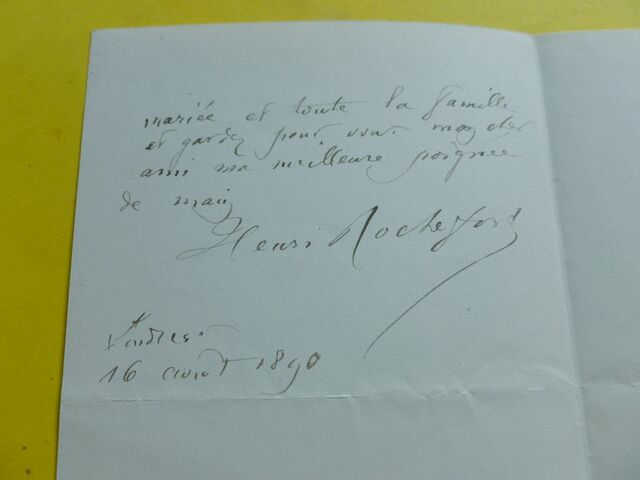 mariée et toute la famille
et gardez pour vous mon cher
ami ma meilleure poignée
de main
Henri Rochefort
Londres
16 août 1890